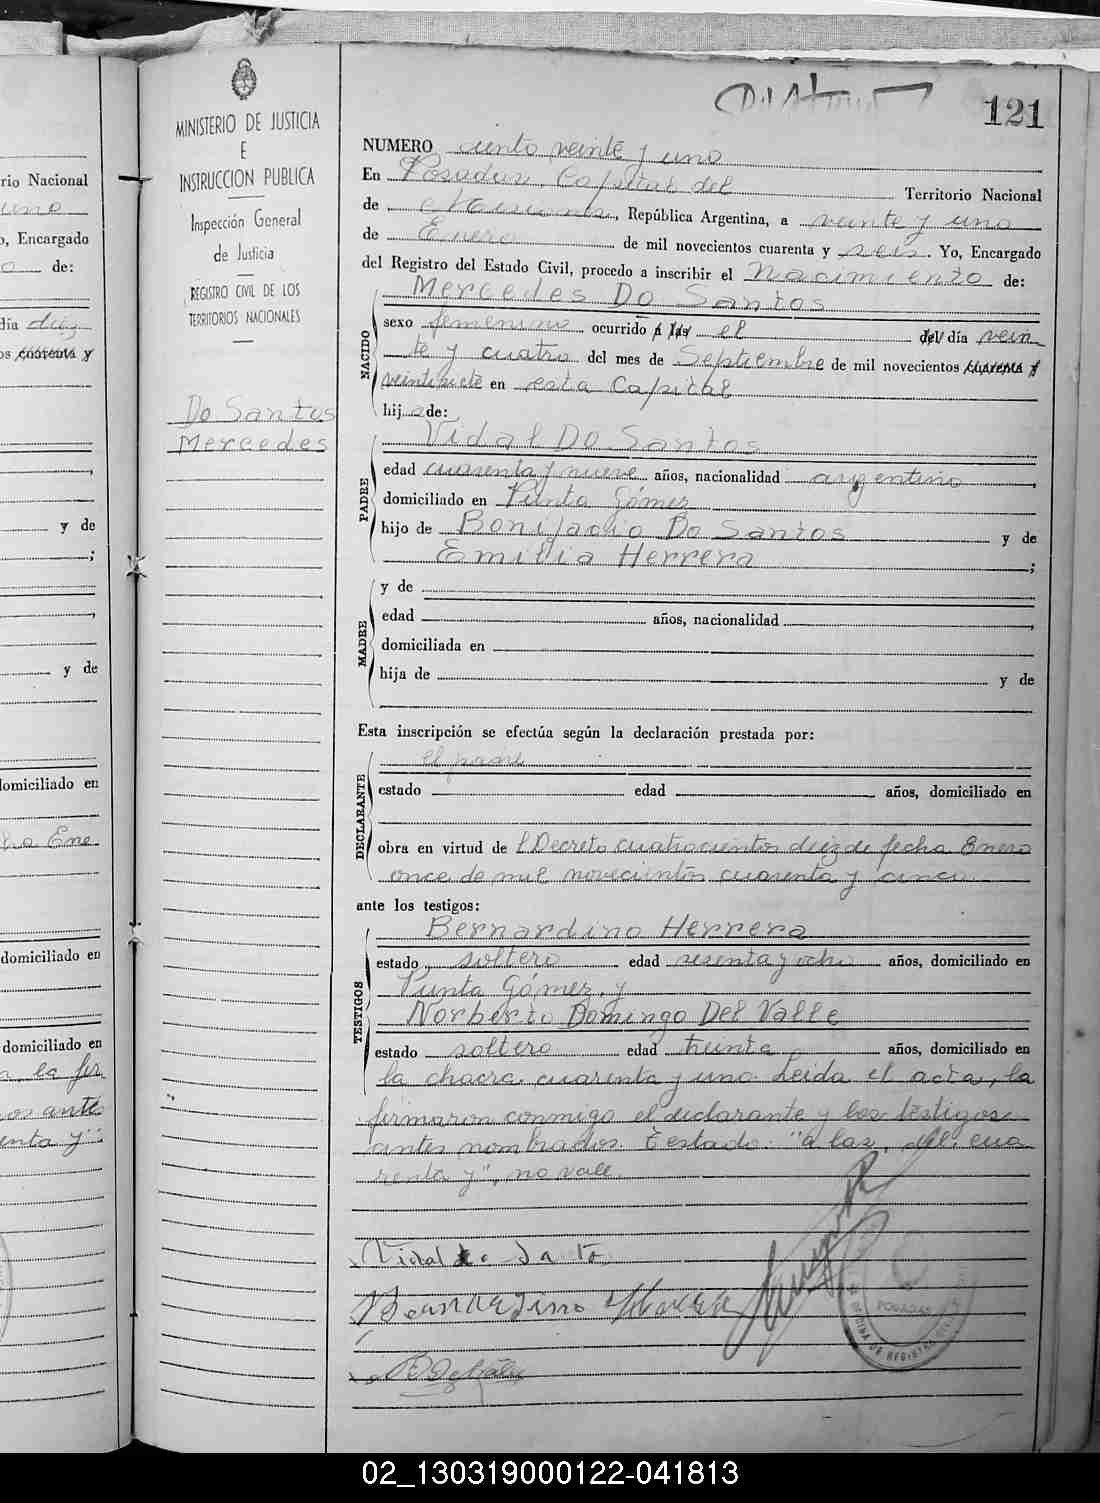 121
MINISTERIO DE JUSTICIA
E
INSTRUCCION PUBLICA
Inspección General
de Justicia
REGISTRO CIVIL DE LOS
TERRITORIOS NACIONALES
Do Santos
Mercedes
NUMERO ciento veinte y uno
En Posadas, Capital del Territorio Nacional
de Misiones, República Argentina, a veinte y uno
de Enero de mil novecientos cuarenta y seis. Yo, Encargado
del Registro del Estado Civil, procedo a inscribir el Nacimiento de:
NACIDO
Mercedes Do Santos
sexo femenino ocurrido a las el del día vein
te y cuatro del mes de Septiembre de mil novecientos cuarenta y
veintisiete en esta Capital
hija de:
PADRE
Vidal Do Santos
edad cuarenta y nueve años, nacionalidad argentino
domiciliado en Punta Gómez
hijo de Bonifacio Do Santos y de
Emilia Herrera ;
MADRE
y de
edad años, nacionalidad ,
domiciliada en
hija de y de
Esta inscripción se efectúa según la declaración prestada por:
DECLARANTE
el padre
estado edad años, domiciliado en
obra en virtud de l Decreto cuatrocientos diez de fecha Enero
once de mil novecientos cuarenta y cinco
ante los testigos:
TESTIGOS
Bernardino Herrera
estado soltero edad sesenta y ocho años, domiciliado en
Punta Gómez, y
Norberto Domingo Del Valle
estado soltero edad treinta años, domiciliado en
la chacra cuarenta y uno. Leida el acta, la
firmaron conmigo el declarante y los testigos
antes nombrados. Testado: "a las, del, cua
renta y", no vale.
Vidal do Santo
Bernardino Herrera
OFICINA DE REGISTRO CIVIL
POSADAS
rio Nacional
uno
o, Encargado
de:
día diez
os cuarenta y
y de
;
,
y de
domiciliado en
domiciliado en
domiciliado en
a, la fir
os antes
enta y"
02_130319000122-041813